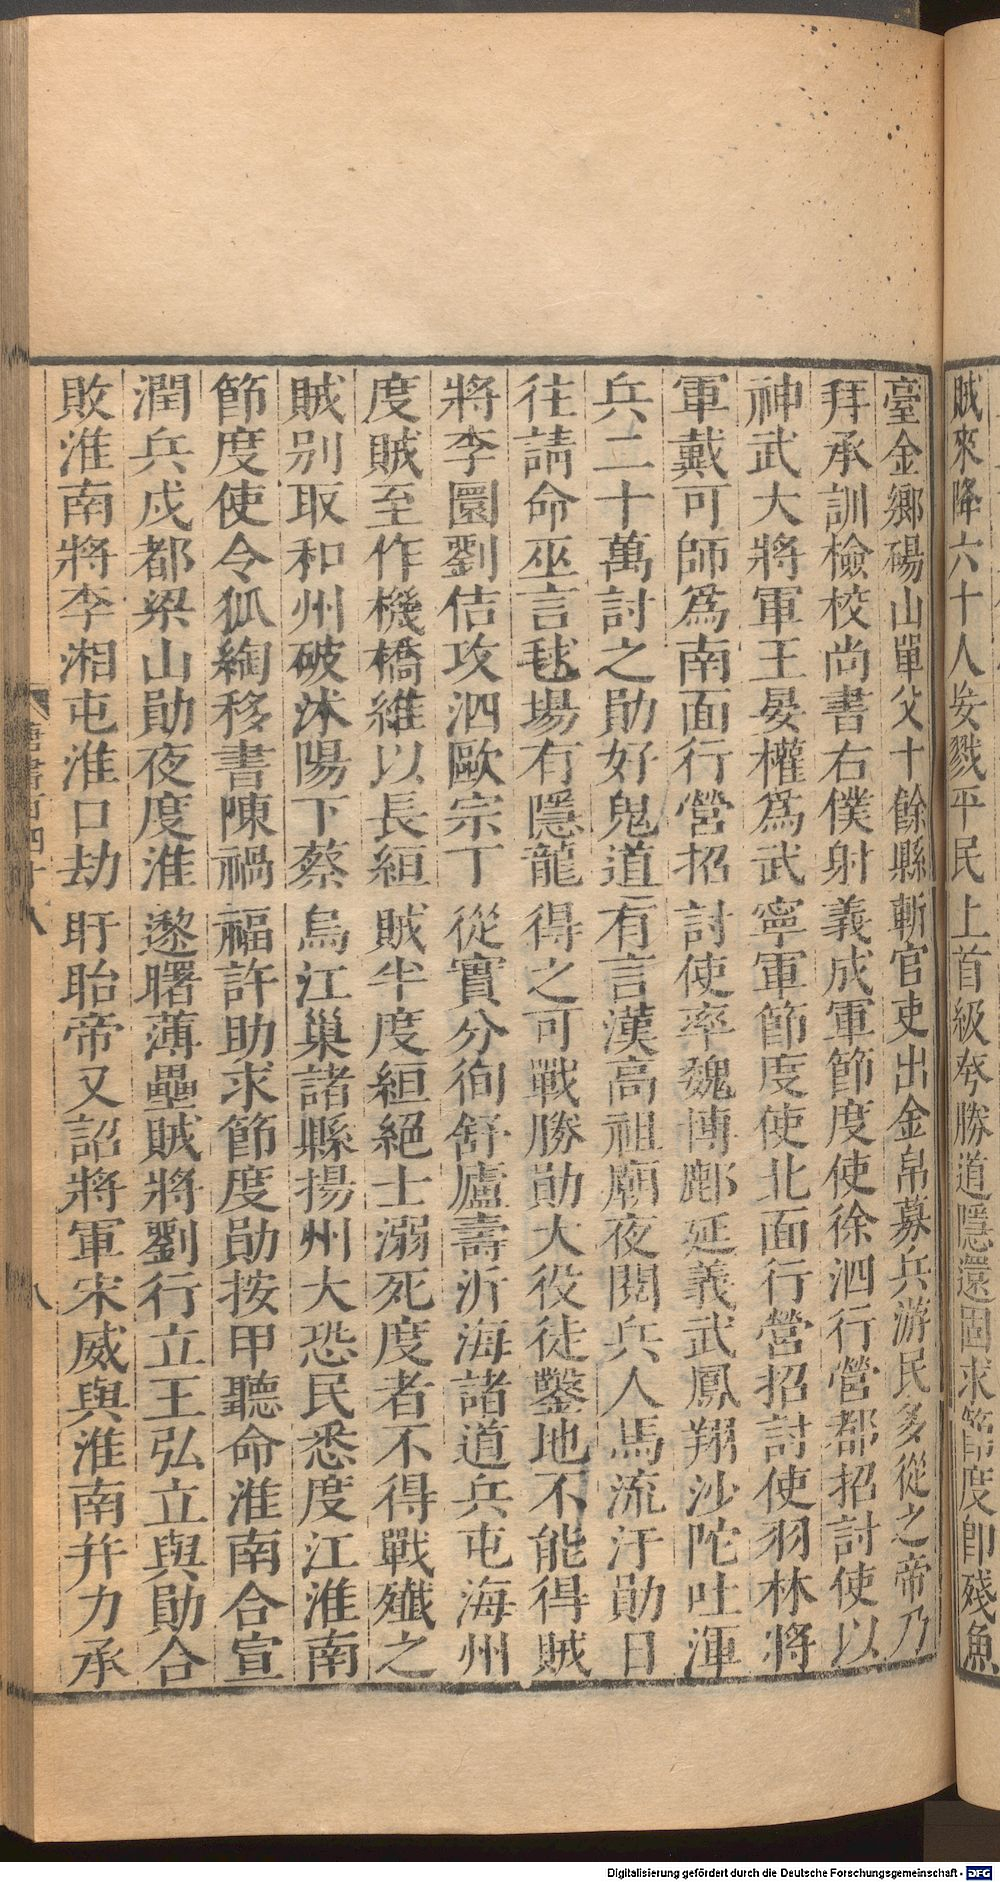 賊來降六十人妄戮平民上首級夸勝道隱還固求節度卽殘魚
臺金鄉碭山單父十餘縣斬官吏出金帛募兵游民多從之帝乃
拜承訓檢校尚書右僕射義成軍節度使徐泗行營都招討使以
神武大將軍王晏權爲武寧軍節度使北面行營招討使羽林將
軍戴可師爲南面行營招討使率魏博鄜延義武鳳翔沙陀吐渾
兵二十萬討之勛好鬼道有言漢高祖廟夜閱兵人馬流汗勛日
往請命巫言毬場有隱龍得之可戰勝勛大役徒鑿地不能得賊
將李圓劉佶攻泗歐宗丁從實分徇舒廬壽沂海諸道兵屯海州
度賊至作機橋維以長絙賊半度絙絕士溺死度者不得戰殲之
賊别取和州破沭陽下蔡烏江巢諸縣揚州大恐民悉度江淮南
節度使令狐綯移書陳禍福許助求節度勛按甲聽命淮南合宣
潤兵戍都梁山勛夜度淮遂曙薄壘賊將劉行立王弘立與勛合
敗淮南將李湘屯淮口劫盱眙帝又詔將軍宋威與淮南幷力承
唐書百四十八
八
Digitalisierung gefördert durch die Deutsche Forschungsgemeinschaft - DFG